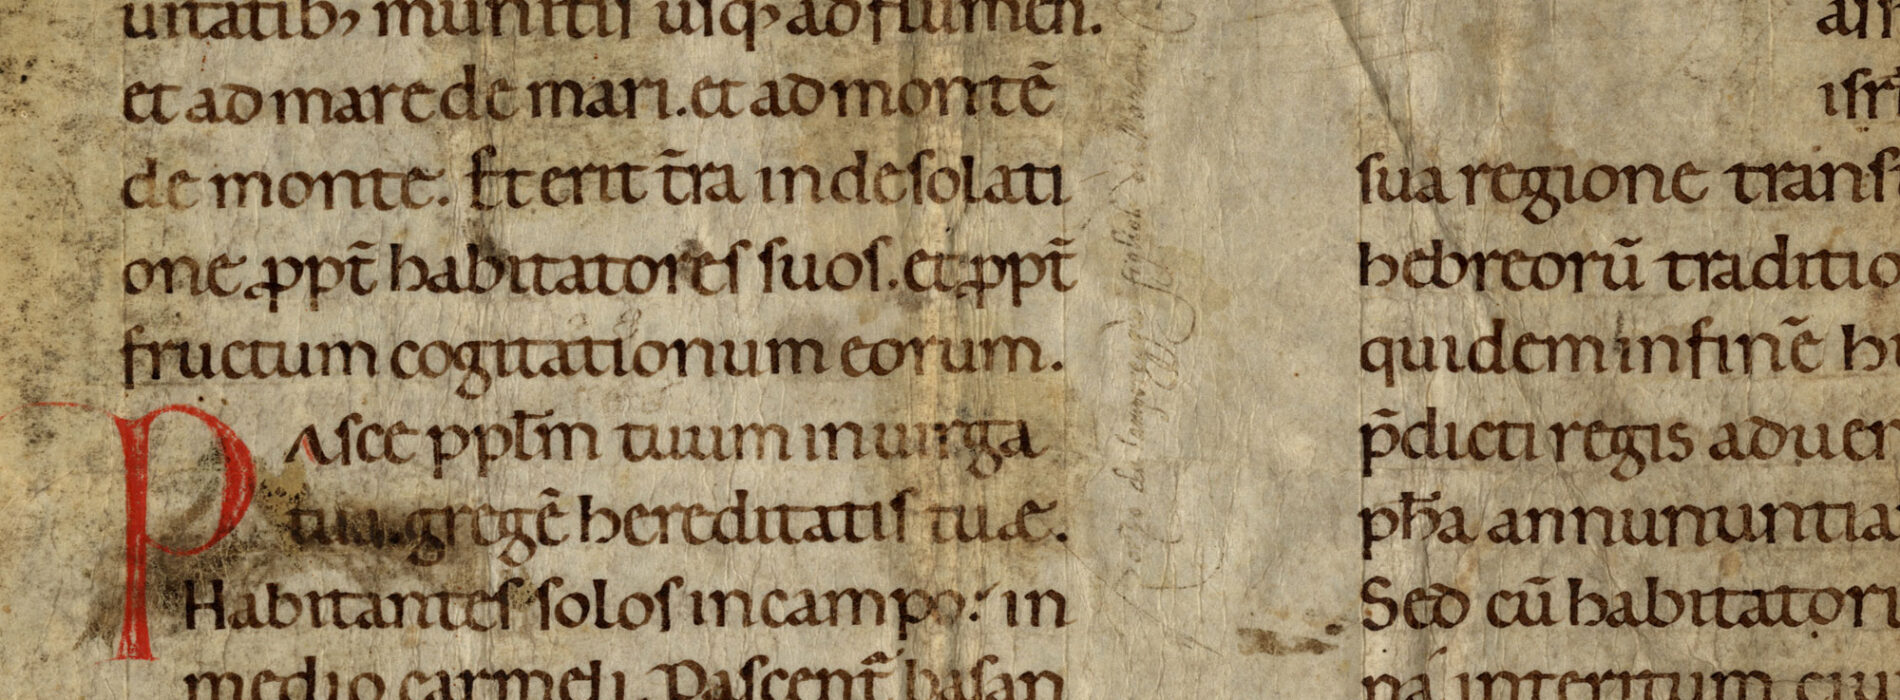 uitatibꝫ munitis usqꝫ ad flumen.
et ad mare de mari. et ad montē
de monte. Et erit t̄ra in desolati
one ꝓpt̄ habitatores suos. et ꝓpt̄
fructum cogitationum eorum.
PAsce ppl̄m tuum in uirga
tua. gregē hereditatis tuæ.
Habitantes solos in campo: in
medio carmeli. Pascent᷑ basan
isrl̄
sua regione transf
hebreorū traditio
quidem in finē hu
p̄dicti regis aduer
ph̄a annununtia
Sed cū habitatori
na interitum eiu